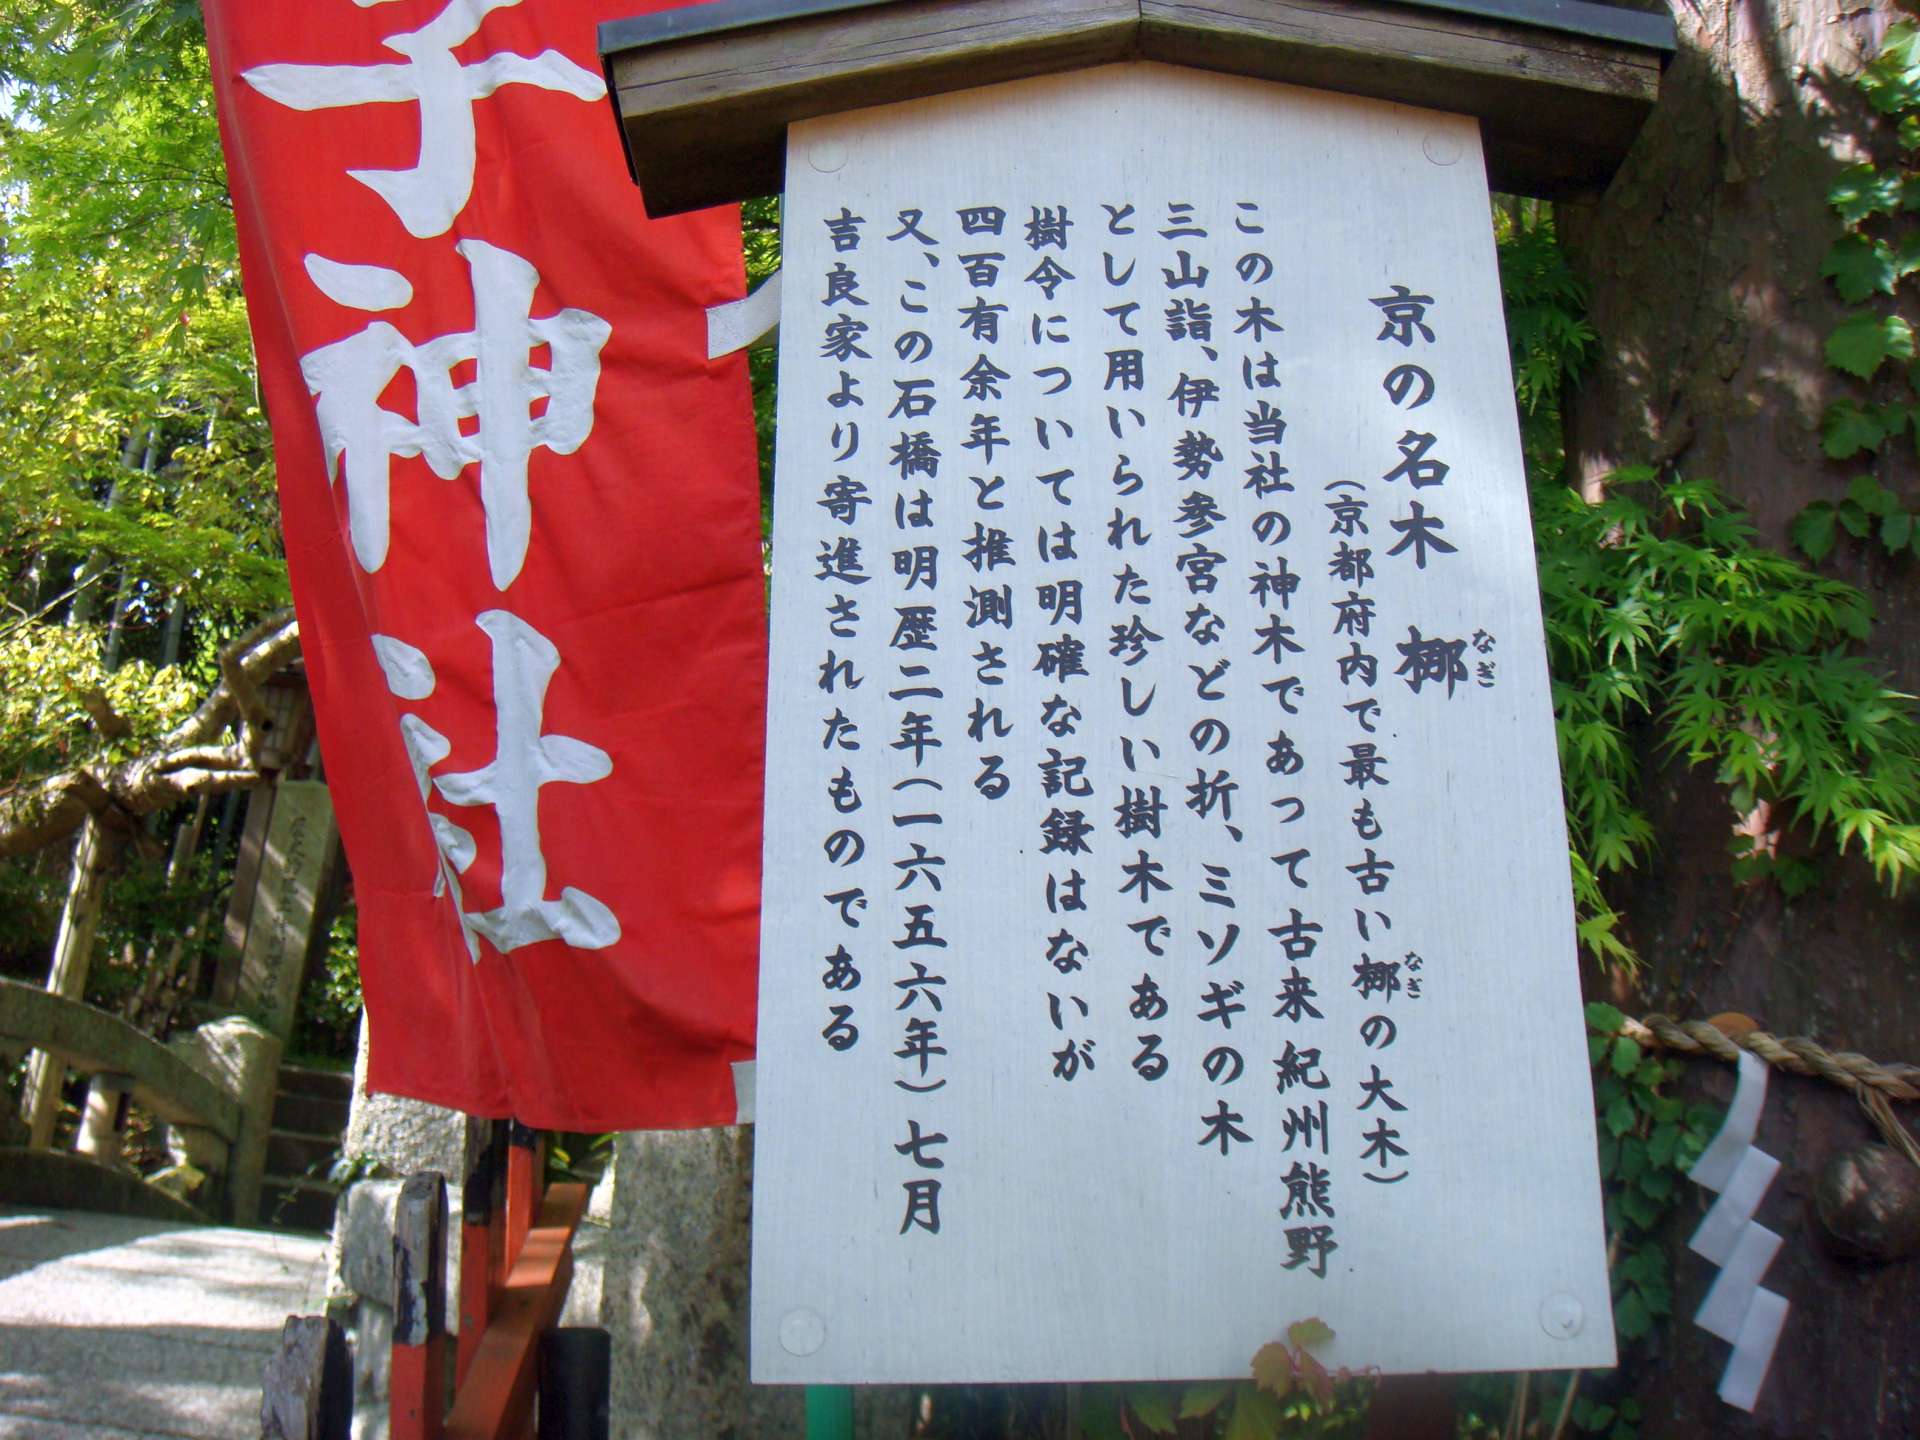 京の名木 梛
なぎ
（京都府内で最も古い梛の大木）
なぎ
この木は当社の神木であって古来紀州熊野
三山詣、伊勢参宮などの折、ミソギの木
として用いられた珍しい樹木である
樹令については明確な記録はないが
四百有余年と推測される
又、この石橋は明歴二年（一六五六年）七月
吉良家より寄進されたものである
子神社